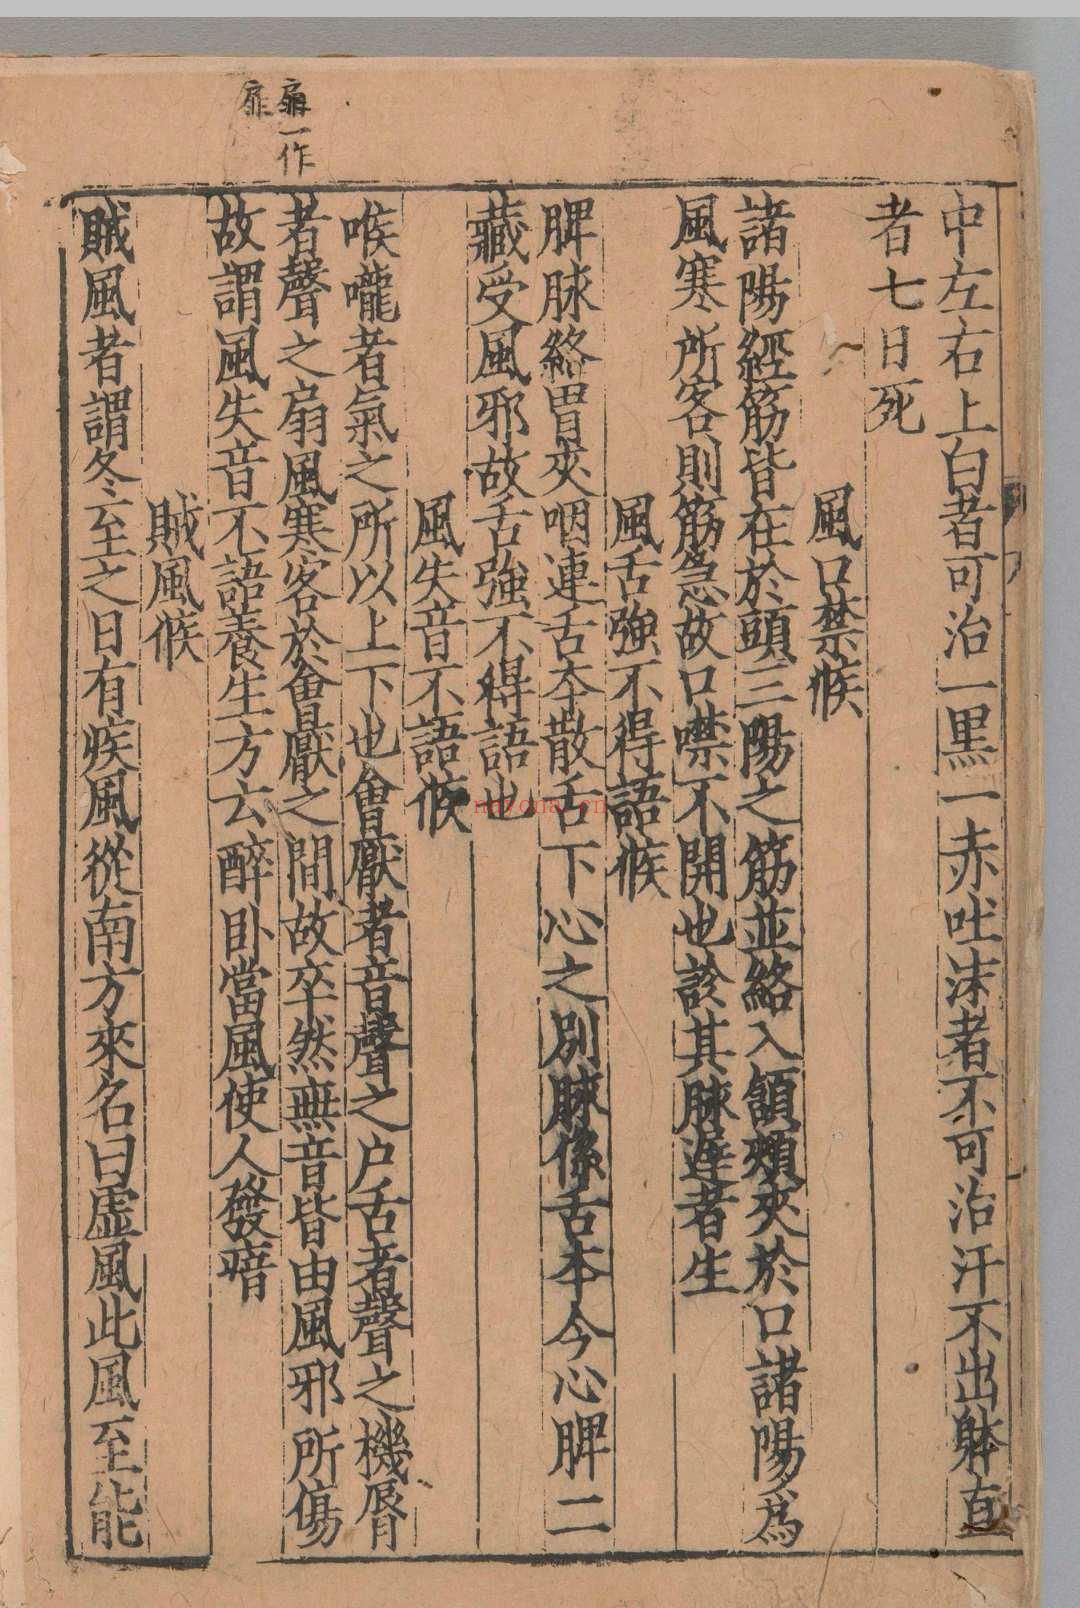 扇一作
扉
中左右上白者可治一黑一赤吐沫者不可治汗不出躰直
者七日死
風口禁候
諸陽經筋皆在於頭三陽之筋並絡入頷頰夾於口諸陽爲
風寒所客則筋急故口噤不開也診其脉遲者生
風舌強不得語候
脾脉終胃夾咽連舌本散舌下心之別脉係舌本今心脾二
藏受風邪故舌強不得語也
風失音不語候
喉嚨者氣之所以上下也會厭者音聲之户舌者聲之機脣
者聲之扇風寒客於會厭之間故卒然無音皆由風邪所傷
故謂風失音不語養生方云醉卧當風使人發瘖
賊風候
賊風者謂冬至之日有疾風從南方來名曰虛風此風至能
nayona.cn